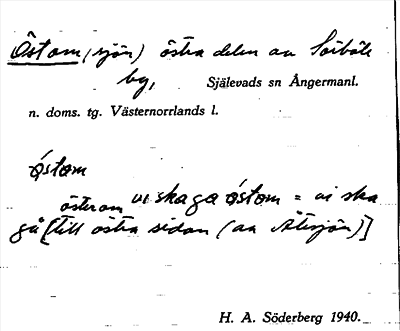 Östom (sjön) östra delen av Sörböle
by, Själevads sn Ångermanl.
n. doms. tg. Västernorrlands l.
óstom
österom vi ska ga óstom = vi ska
gå [till östra sidan (av Ätesjön)]
H. A. Söderberg 1940.